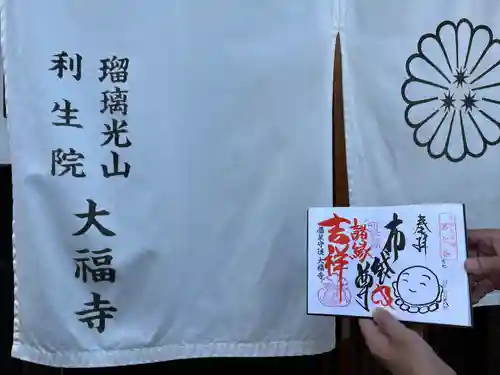 瑠璃光山
利生院
大福寺
奉拝
布袋尊
諸縁
吉祥
大福寺